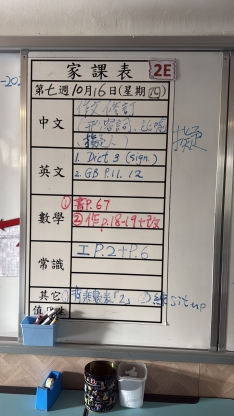 家課表 2E
第七週10月16日(星期四)
中文
作文修訂
形容詞、
擬
英文
1. Dict 3 (sign.)
2. GB P.11, 12
數學
①書P.67
②作p.18-19+改
常識
工P.2+P.6
其它
sit up